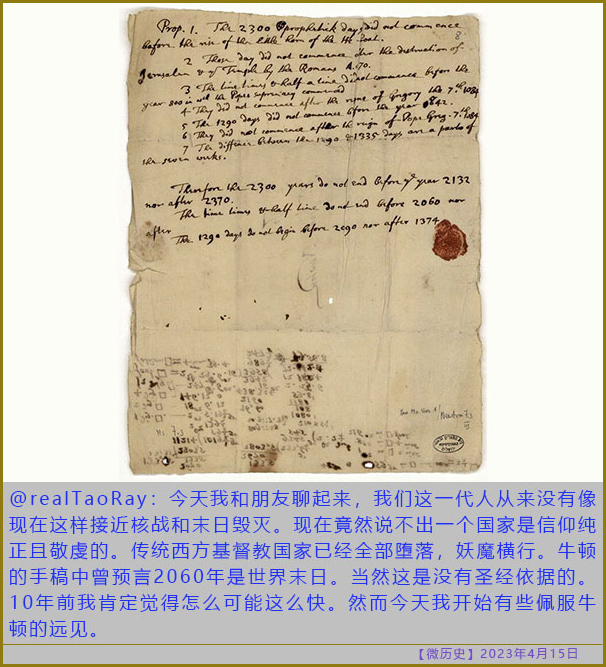 Prop. 1. The 2300 prophetick days did not commence
before the rise of the little horn of the He Goat.
8
2 Those day did not commence after the destruction of
Jerusalem & ye Temple by the Romans A. 70.
3 The time times & half a time did not commence before the
year 800 in wch the Popes supremacy commenced
4 They did not commence after the reigne of Gregory the 7th. 1084
5 The 1290 days did not commence before the year 842.
6 They did not commence after the reign of Pope Greg. 7th. 1084
7 The diffence between the 1290 & 1335 days are a parts of
the seven weeks.
Therfore the 2300 years do not end before ye year 2132
nor after 2370.
The time times & half time do not end before 2060 nor
after
The 1290 days do not begin before 2090 nor after 1374
@realTaoRay：今天我和朋友聊起来，我们这一代人从来没有像
现在这样接近核战和末日毁灭。现在竟然说不出一个国家是信仰纯
正且敬虔的。传统西方基督教国家已经全部堕落，妖魔横行。牛顿
的手稿中曾预言2060年是世界末日。当然这是没有圣经依据的。
10年前我肯定觉得怎么可能这么快。然而今天我开始有些佩服牛
顿的远见。
【微历史】2023年4月15日